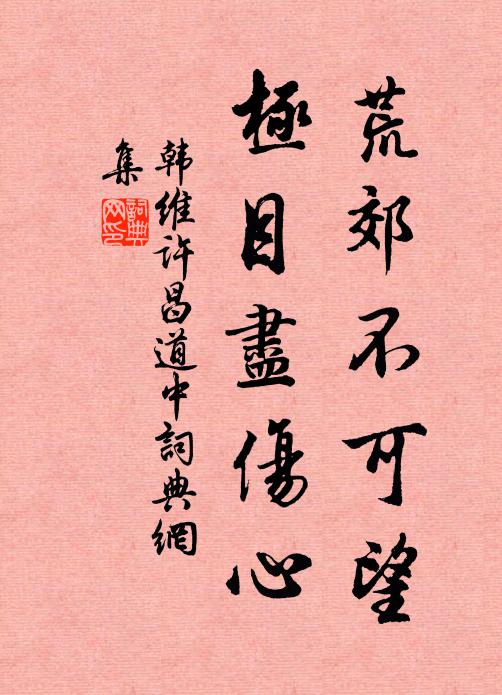 荒郊不可望
極目盡傷心
韓維許昌道中詞典網
集
詞典
网印